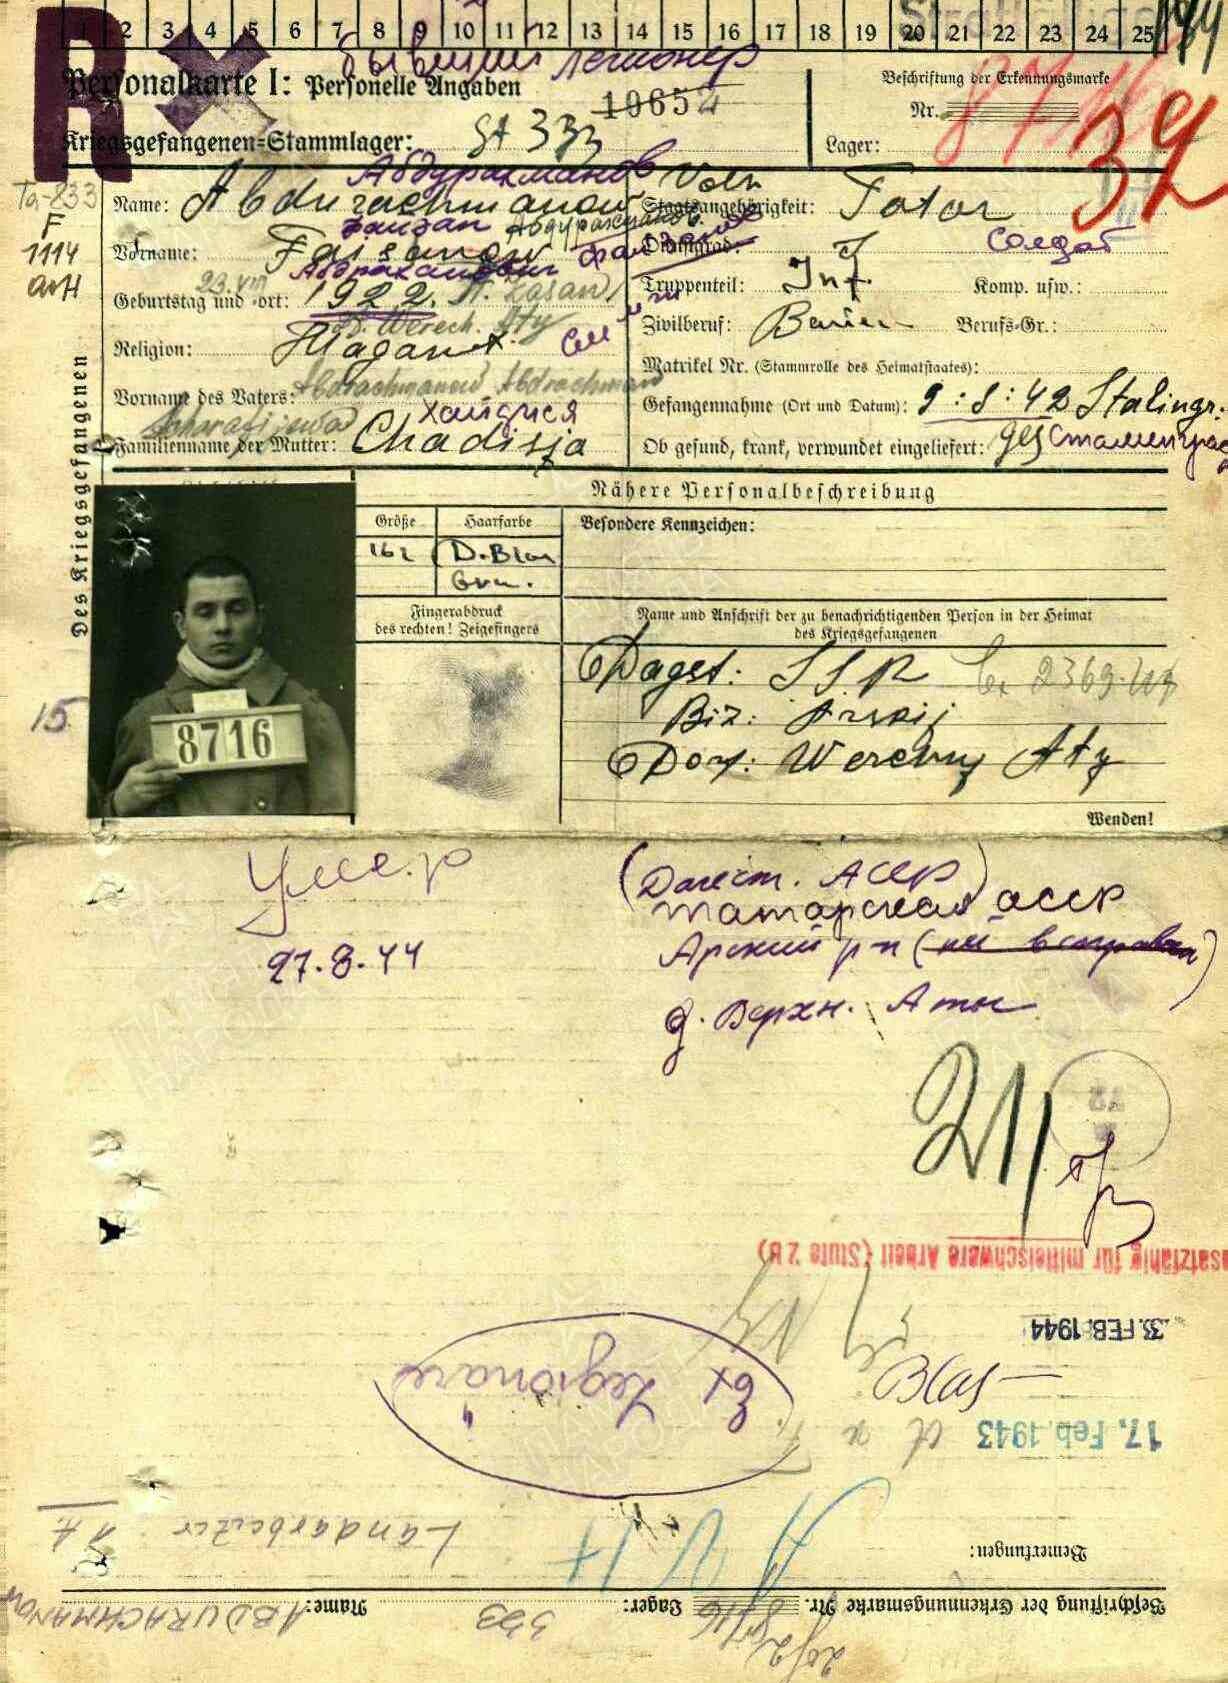 1 2 3 4 5 6 7 8 9 10 11 12 13 14 15 16 17 18 19 20 21 22 23 24 25
R
бывший легионер
Personalkarte I: Personelle Angaben
10652
Beschriftung der Erkennungsmarke
Nr. 8716
39
Kriegsgefangenen-Stammlager: St 333
Lager:
Абдурахманов
Ta-833
F
1114
Name: Abdurachmanow
Volk
Staatsangehörigkeit: Tatar
Файзан Абдурахманов.
Vorname: Faisanow
Dienstgrad:
Солдат
23.VIII
Geburtstag und -ort: 1922. Kasan
Truppenteil: Inf.
Komp. usw.:
Werch. Aty
Zivilberuf: Bauer
Berufs-Gr.:
Religion:
Matrikel Nr. (Stammrolle des Heimatstaates):
Abdrachmanow Abdrachman
Vorname des Vaters:
Gefangennahme (Ort und Datum): 9:8:42 Stalingr.
Хандися
Familienname der Mutter: Chadisja
Ob gesund, krank, verwundet eingeliefert: ges
Des Kriegsgefangenen
Nähere Personalbeschreibung
Größe
Haarfarbe
Besondere Kennzeichen:
162
D. Blon
8716
Fingerabdruck
des rechten! Zeigefingers
Name und Anschrift der zu benachrichtigenden Person in der Heimat
des Kriegsgefangenen
Dagst: SSR
15
Biz: Arskij
Dorf: Werchny Aty
Wenden!
Умер
27.8.44
(Дагест. АССР)
Татарская АССР
Арский р-н
д. Верхн. Аты
211
Einsatzfähig für mittelschwere Arbeit (Stufe 2 B)
3. FEB. 1944
17. Feb. 1943
Ex Legionär
Landarbeiter
Bemerkungen:
Beschriftung der Erkennungsmarke Nr. 8716 Lager: 333 Name: ABDURACHMANOW